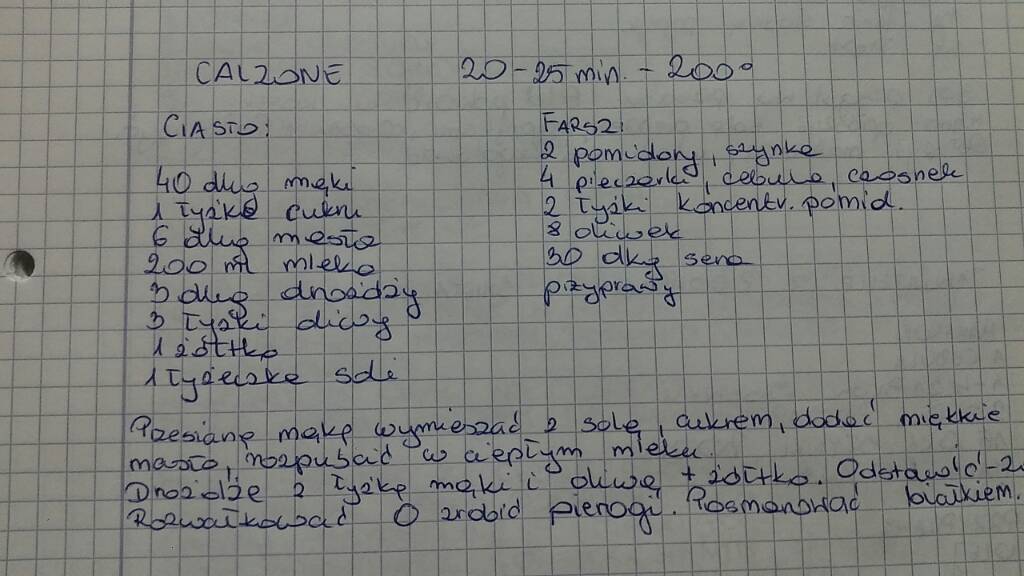 CALZONE 20-25 min. - 200°
CIASTO:
40 dkg mąki
1 łyżka cukru
6 dkg masła
200 ml mleka
3 dkg drożdży
3 łyżki oliwy
1 żółtko
1 łyżeczka soli
FARSZ:
2 pomidory, szynka
4 pieczarki, cebula, czosnek
2 łyżki koncentr. pomid.
8 oliwek
30 dkg sera
przyprawy
Przesianą mąkę wymieszać z solą, cukrem, dodać miękkie
masło, rozpuścić w ciepłym mleku.
Drożdże z łyżką mąki i oliwą + żółtko. Odstawić -
Rozwałkować O zrobić pierogi. Posmarować białkiem.